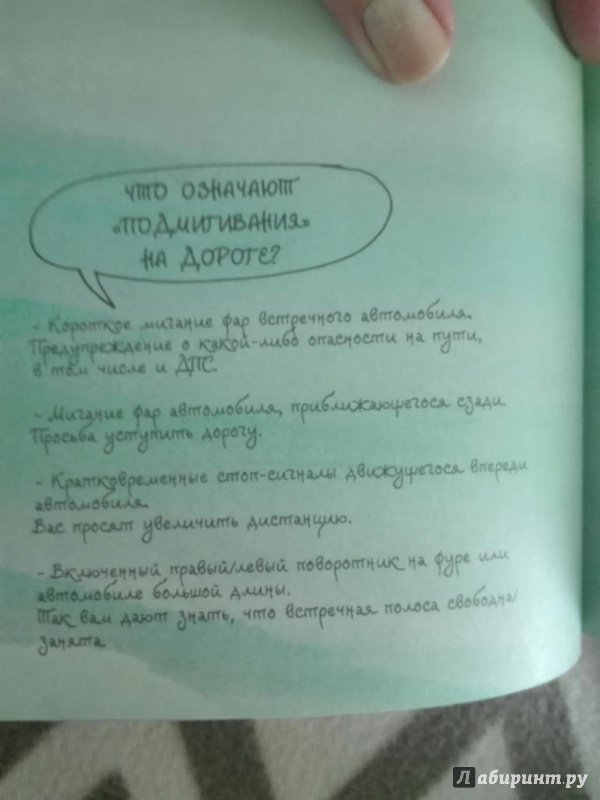 ЧТО ОЗНАЧАЮТ
«ПОДМИГИВАНИЯ»
НА ДОРОГЕ?
- Короткое мигание фар встречного автомобиля.
Предупреждение о какой-либо опасности на пути,
в том числе и ДПС.
- Мигание фар автомобиля, приближающегося сзади.
Просьба уступить дорогу.
- Кратковременные стоп-сигналы движущегося впереди
автомобиля.
Вас просят увеличить дистанцию.
- Включенный правый/левый поворотник на фуре или
автомобиле большой длины.
Так вам дают знать, что встречная полоса свободна/
занята.
Лабиринт.ру